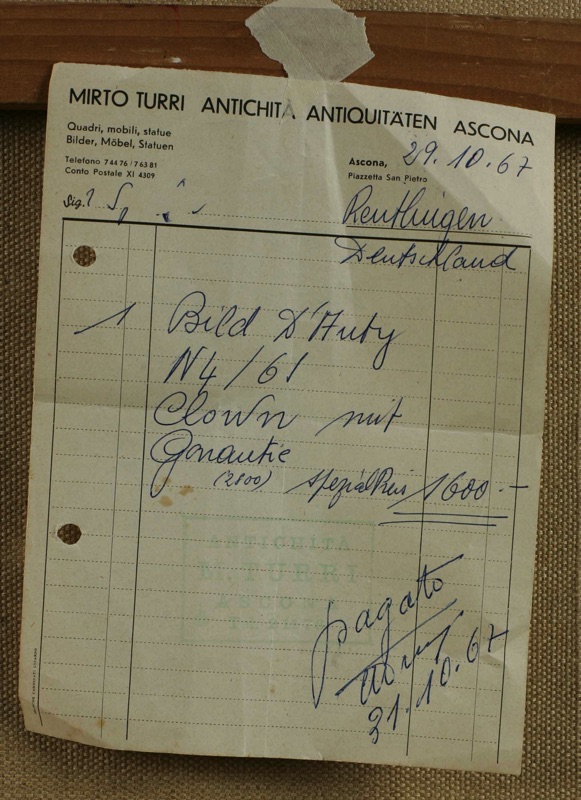 MIRTO TURRI ANTICHITÀ ANTIQUITÄTEN ASCONA
Quadri, mobili, statue
Bilder, Möbel, Statuen
Telefono 7 44 76 / 7 63 81
Conto Postale XI 4309
Ascona, 29.10.67
Piazzetta San Pietro
Sig.
Reuthlingen
Deutschland
1 Bild D'Huty
N4/61
Clown mit
Garantie
(2800) spezialPreis 1600.-
ANTICHITÀ
M. TURRI
ASCONA
pagato
31.10.67